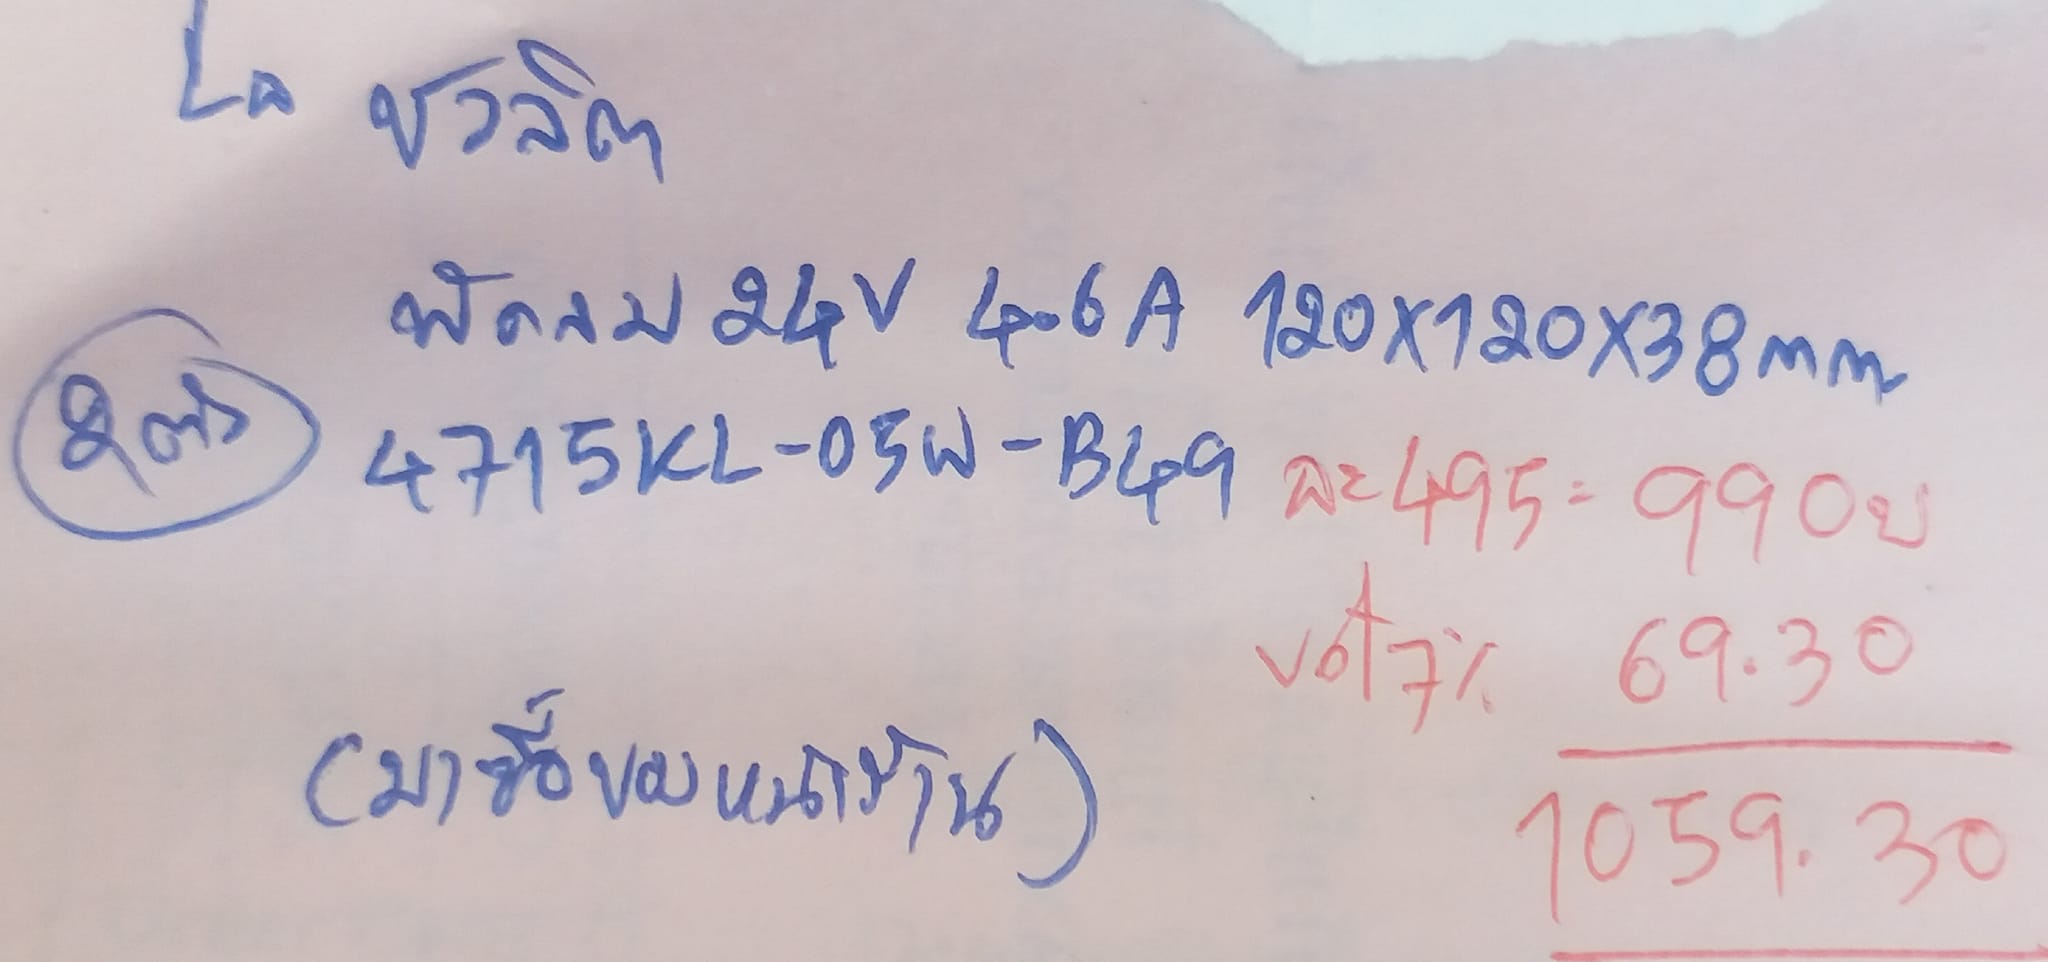 ชวลิต
พัดลม 24V 4.6A 120X120X38mm
2ตัว
4715KL-05W-B49 ละ495= 990บ
vat7% 69.30
(มาซื้อของหน้าร้าน)
1059.30